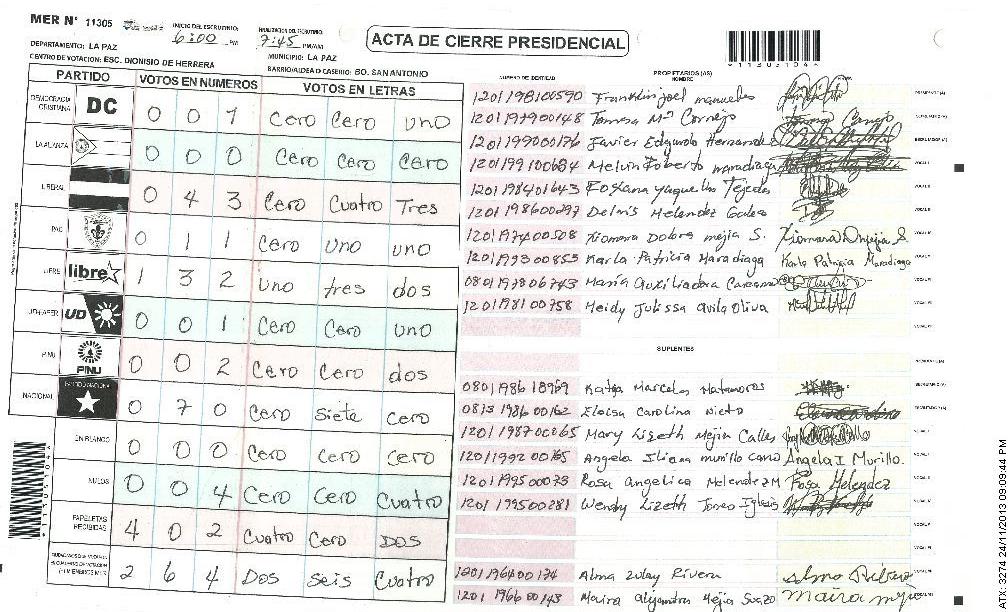 MER N° 11305
INICIO DEL ESCRUTINIO: 6:00 PM
FINALIZACION DEL ESCRUTINIO: 7:45 PM/AM
ACTA DE CIERRE PRESIDENCIAL
DEPARTAMENTO: LA PAZ
MUNICIPIO: LA PAZ
CENTRO DE VOTACION: ESC. DIONISIO DE HERRERA
BARRIO/ALDEA O CASERIO: BO. SAN ANTONIO
PARTIDO VOTOS EN NUMEROS VOTOS EN LETRAS
DEMOCRACIA CRISTIANA DC 0 0 1 Cero Cero uno
LA ALIANZA 0 0 0 Cero Cero Cero
LIBERAL 0 4 3 Cero Cuatro Tres
PAC 0 1 1 Cero uno uno
LIBRE libre 1 3 2 uno tres dos
UD-FAPER UD 0 0 1 Cero Cero uno
PINU PINU 0 0 2 Cero Cero dos
NACIONAL PARTIDO NACIONAL 0 7 0 Cero siete Cero
EN BLANCO 0 0 0 Cero Cero Cero
NULOS 0 0 4 Cero Cero Cuatro
PAPELETAS RECIBIDAS 4 0 2 Cuatro Cero DOS
2 6 4 Dos seis Cuatro
NUMERO DE IDENTIDAD PROPIETARIOS (AS) NOMBRE FIRMA
1201198100590 Franklin joel manueles
1201197900148 Tomasa Mª Cornejo
1201199000176 Javier Edgardo Hernandez
1201199100684 Melvin Roberto maradiaga
1201198401643 Roxana yaquelin Tejeda
1201198600297 Delmis Melendez Galeas
1201197400508 Xiomara Dolores mejia S. Xiomara D mejia S.
1201199300853 Karla Patricia Maradiaga Karla Patricia Maradiaga
0801197806743 María Auxiliadora
1201198100758 Heidy Julissa avila Oliva
SUPLENTES
0801198618969 Katya Marcelos Matamoros
0815198600162 Eloisa Carolina Nieto
1201198700065 Mary Lizeth Mejia Calles
1201199200765 Angela Iliana murillo cano Angela I Murillo.
1201199500073 Rosa Angelica Melendez M Rosa Melendez
1201199500281 Wendy Lizeth Torres Iglesias
1201196400174 Alma Zulay Rivera
1201196600143 Maira Alejandra Mejia Suazo
1113051044
ATX-3274 24/11/2013 09:09:44 PM